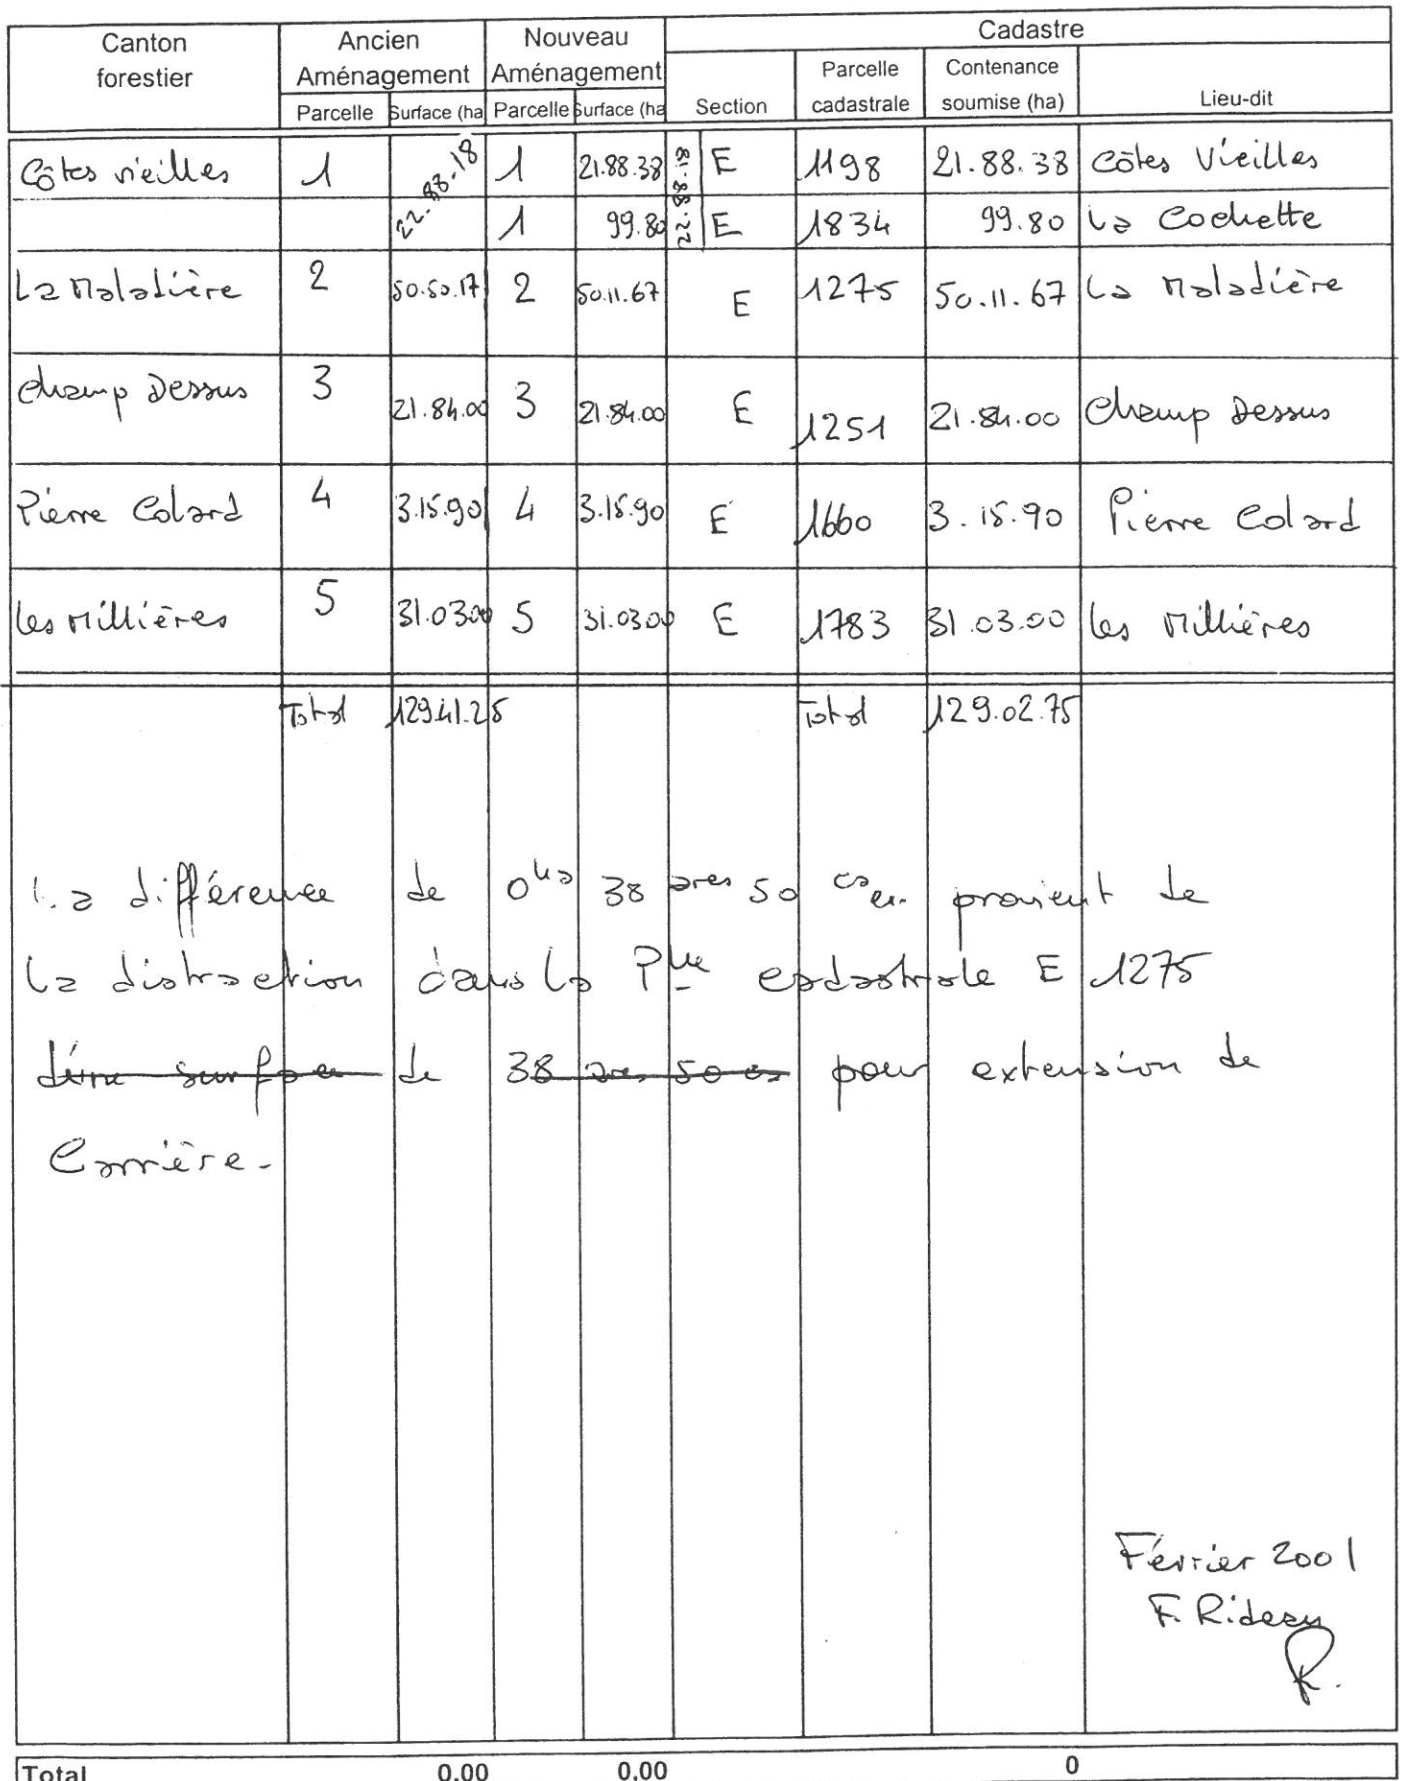 Canton forestier Ancien Aménagement Nouveau Aménagement Cadastre
Parcelle Surface (ha Parcelle Surface (ha Section Parcelle cadastrale Contenance soumise (ha) Lieu-dit
Côtes vieilles 1 22.88.18 1 21.88.38 22.88.18 E 1198 21.88.38 Côtes Vieilles
1 99.80 E 1834 99.80 La Cochette
La Maladière 2 50.50.17 2 50.11.67 E 1275 50.11.67 La Maladière
Champ Dessus 3 21.84.00 3 21.84.00 E 1251 21.84.00 Champ Dessus
Pierre Colard 4 3.15.90 4 3.15.90 E 1660 3.15.90 Pierre Colard
Les Millières 5 31.03.00 5 31.03.00 E 1783 31.03.00 Les Millières
Total 129.41.25 Total 129.02.75
La différence de 0 ha 38 ares 50 ca provient de
la distraction dans la Plle cadastrale E 1275
d'une surface de 38 ares 50 ca pour extension de
Carrière.
Février 2001
F. Rideau
R.
Total 0.00 0.00 0